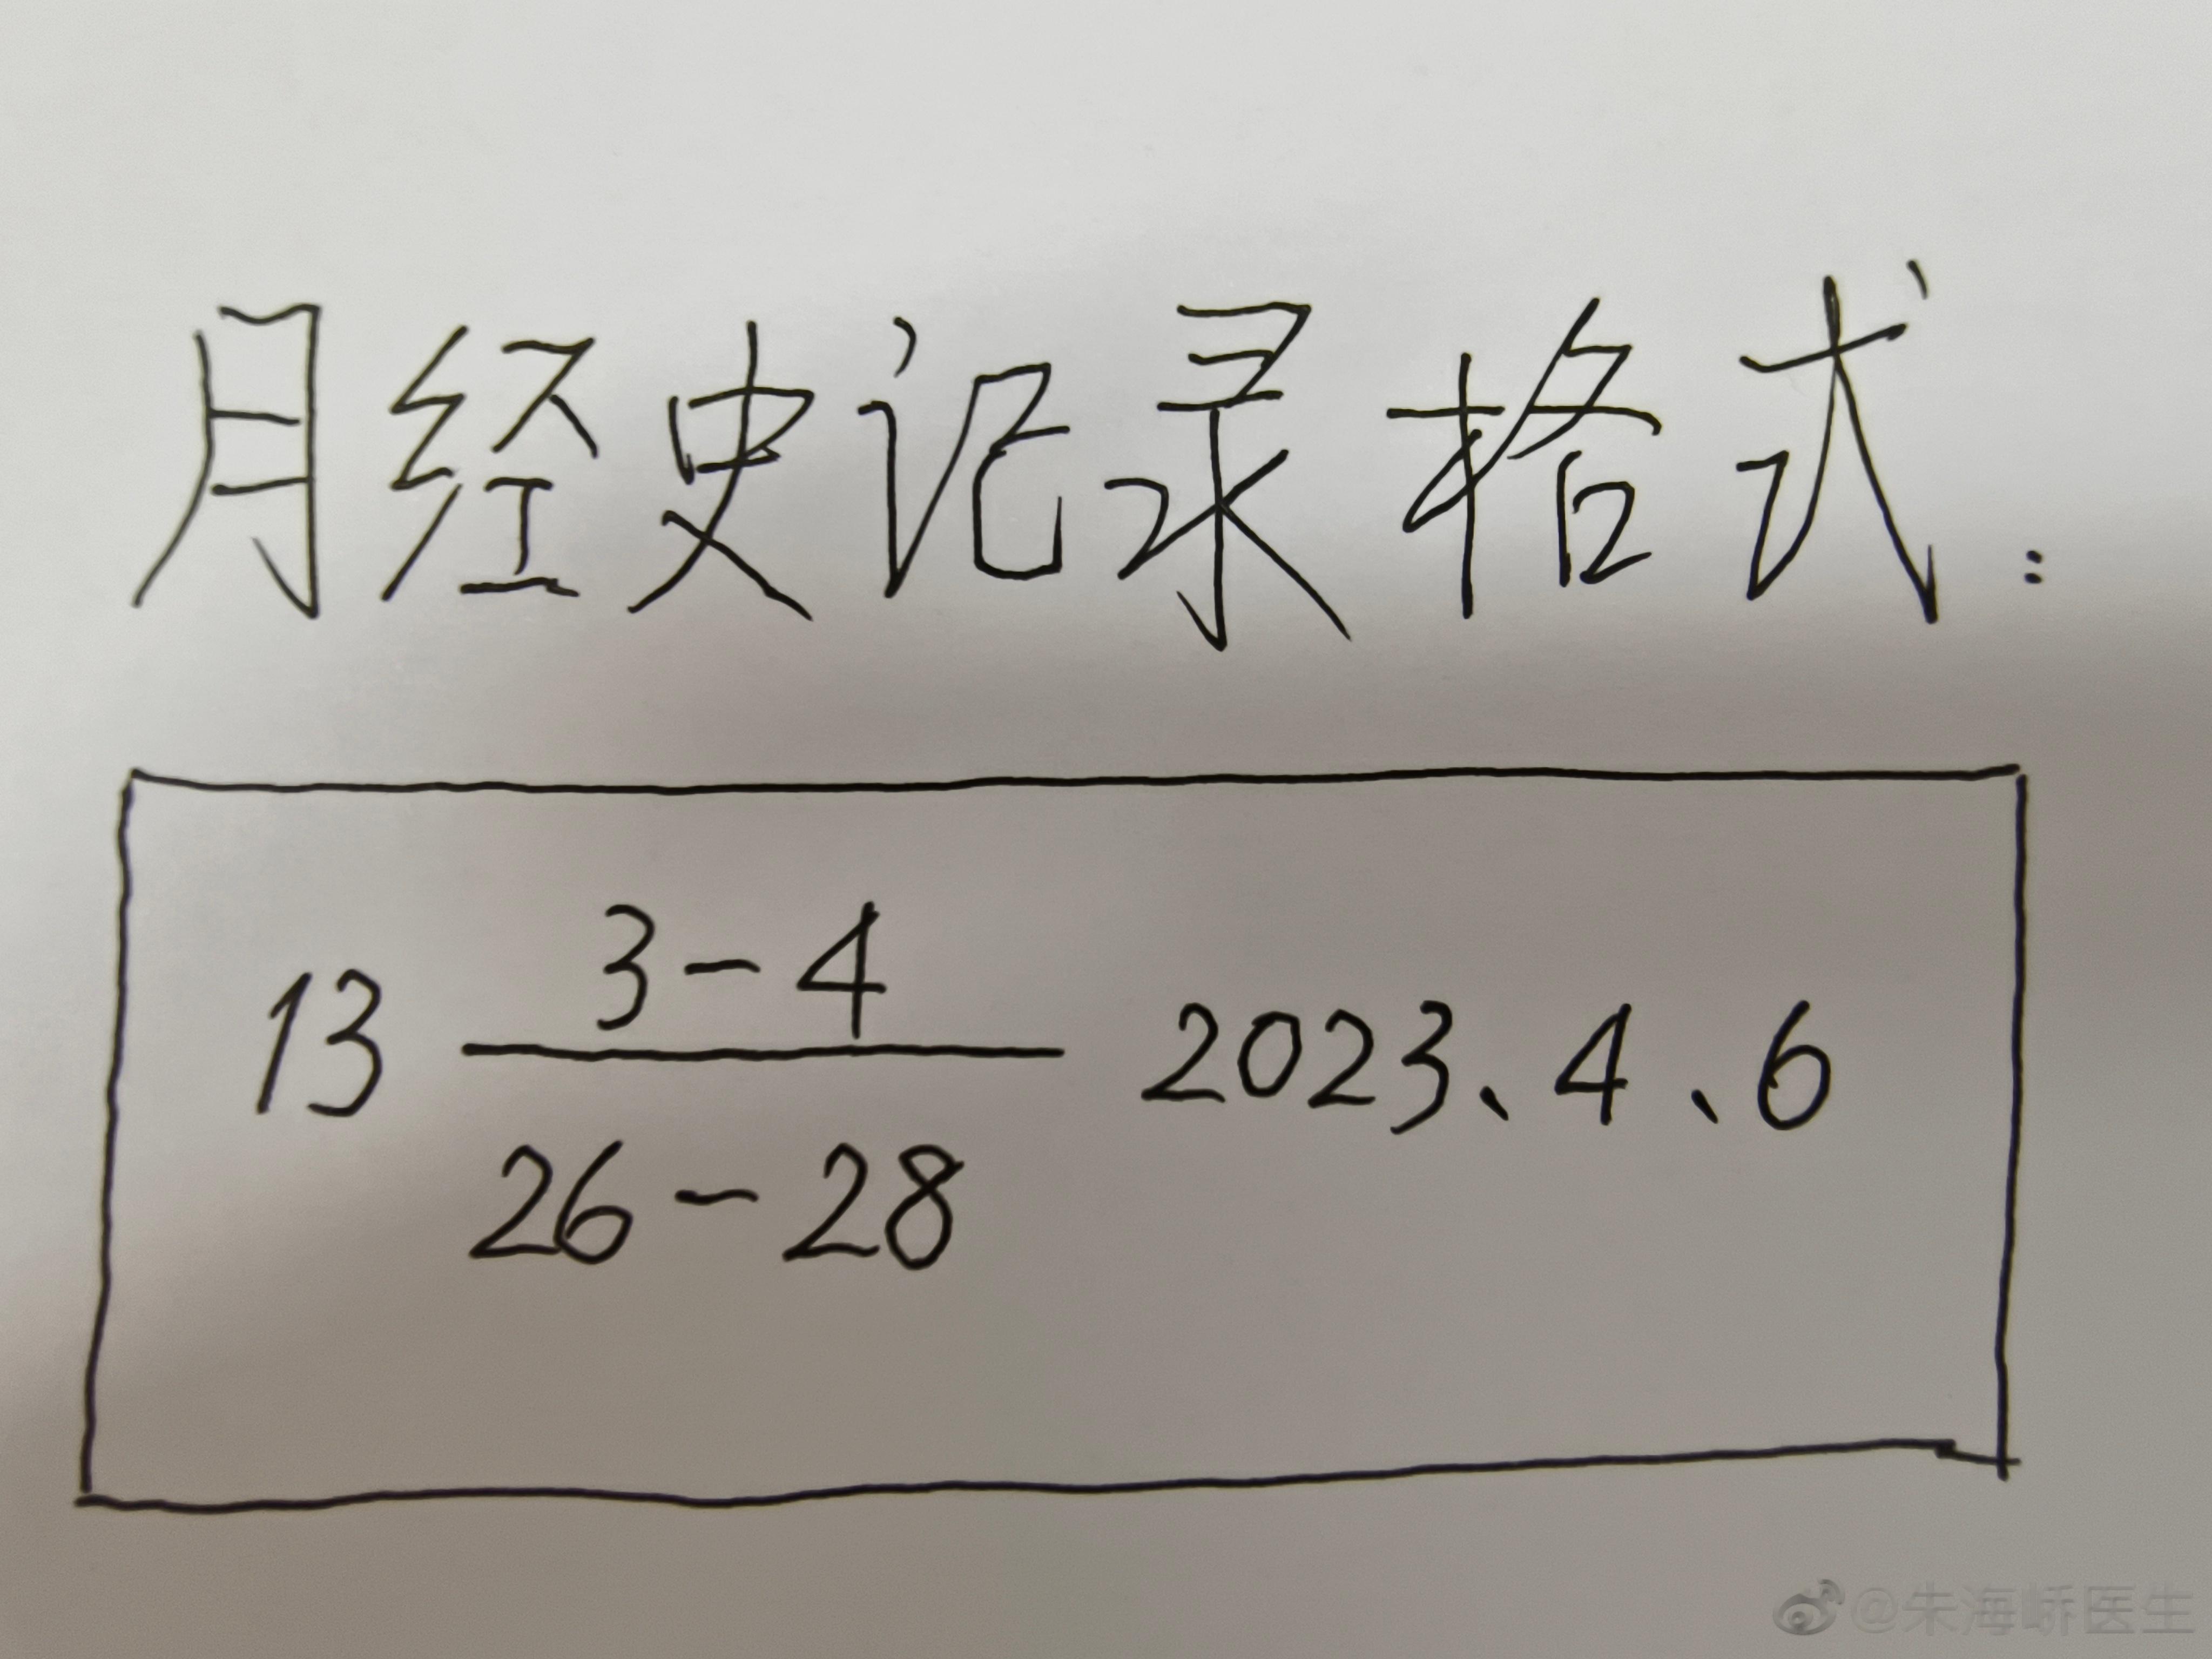 月经史记录格式：
3-4
13 2023、4、6
26-28
@朱海峤医生